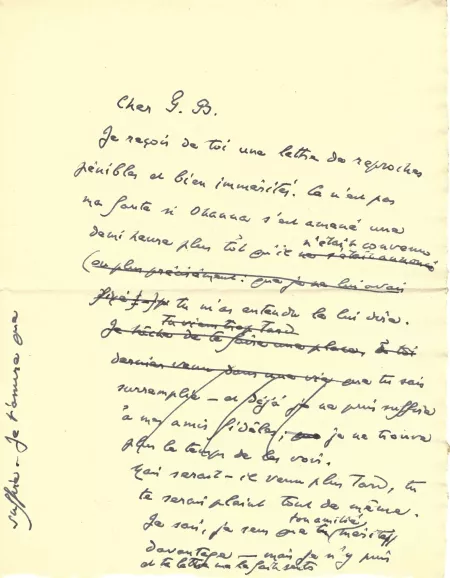 Cher G. B.
Je reçois de toi une lettre de reproches
pénibles et bien immérités. Ce n'est pas
ma faute si Ohanna s'est amené une
demi heure plus tôt qu'il n'était convenu
(ou plus précisément: que je ne lui avais
fixé); tu m'as entendu le lui dire.
Tu viens trop tard
Je tâche de te faire une place, à toi
dernier venu dans une vie que tu sais
surremplie – et déjà je ne puis suffire
à mes amis fidèles; je ne trouve
plus le temps de les voir.
Mais serait-il venu plus tard, tu
te serais plaint tout de même.
Je sais, je sens que ton amitié mérite
davantage – mais je n'y puis
et ta lettre me le fait sentir
suffire – Je t'assure que